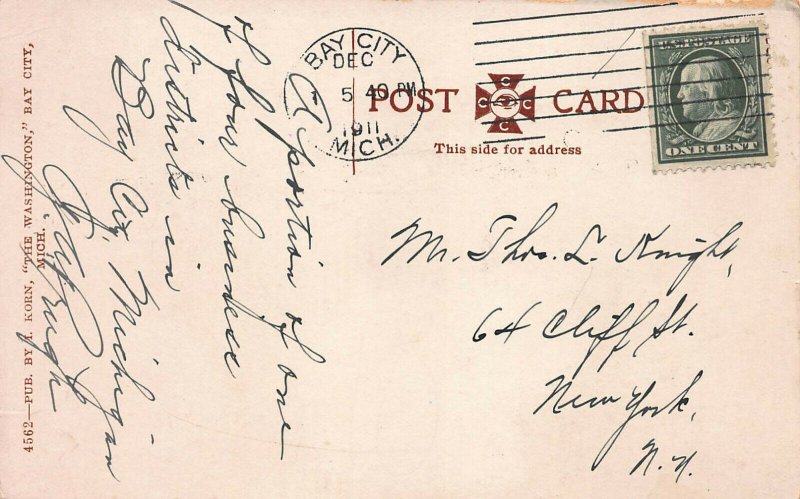 4562—PUB. BY I. KORN, "THE WASHINGTON," BAY CITY,
MICH.
A portion of one
of four business
districts in
Bay City, Michigan
BAY CITY
DEC
5 4 30 PM
1911
MICH.
POST CARD
This side for address
U.S. POSTAGE
ONE CENT
Mr. Thos. L. Knight,
64 Cliff St.
New York,
N.Y.